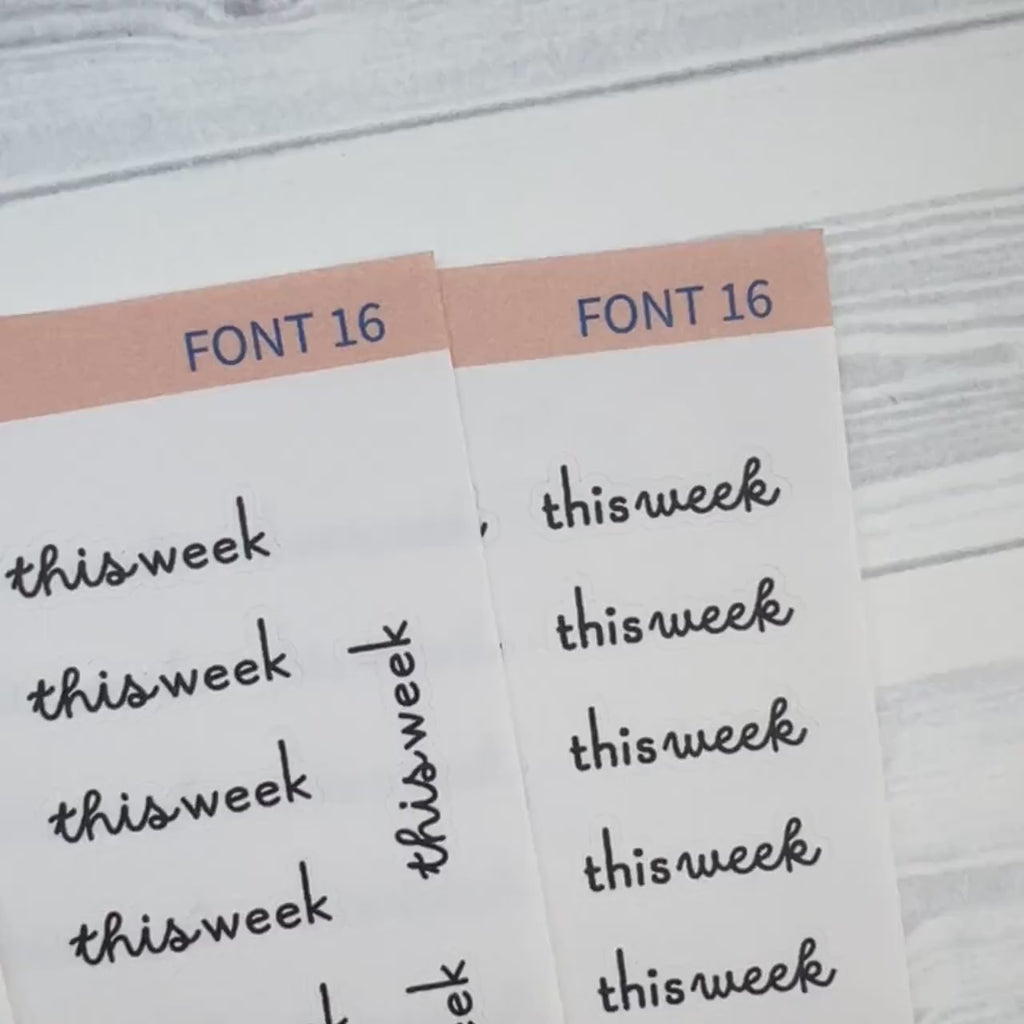 FONT 16
this week
this week
this week
this week
this week
FONT 16
this week
this week
this week
this week
this week